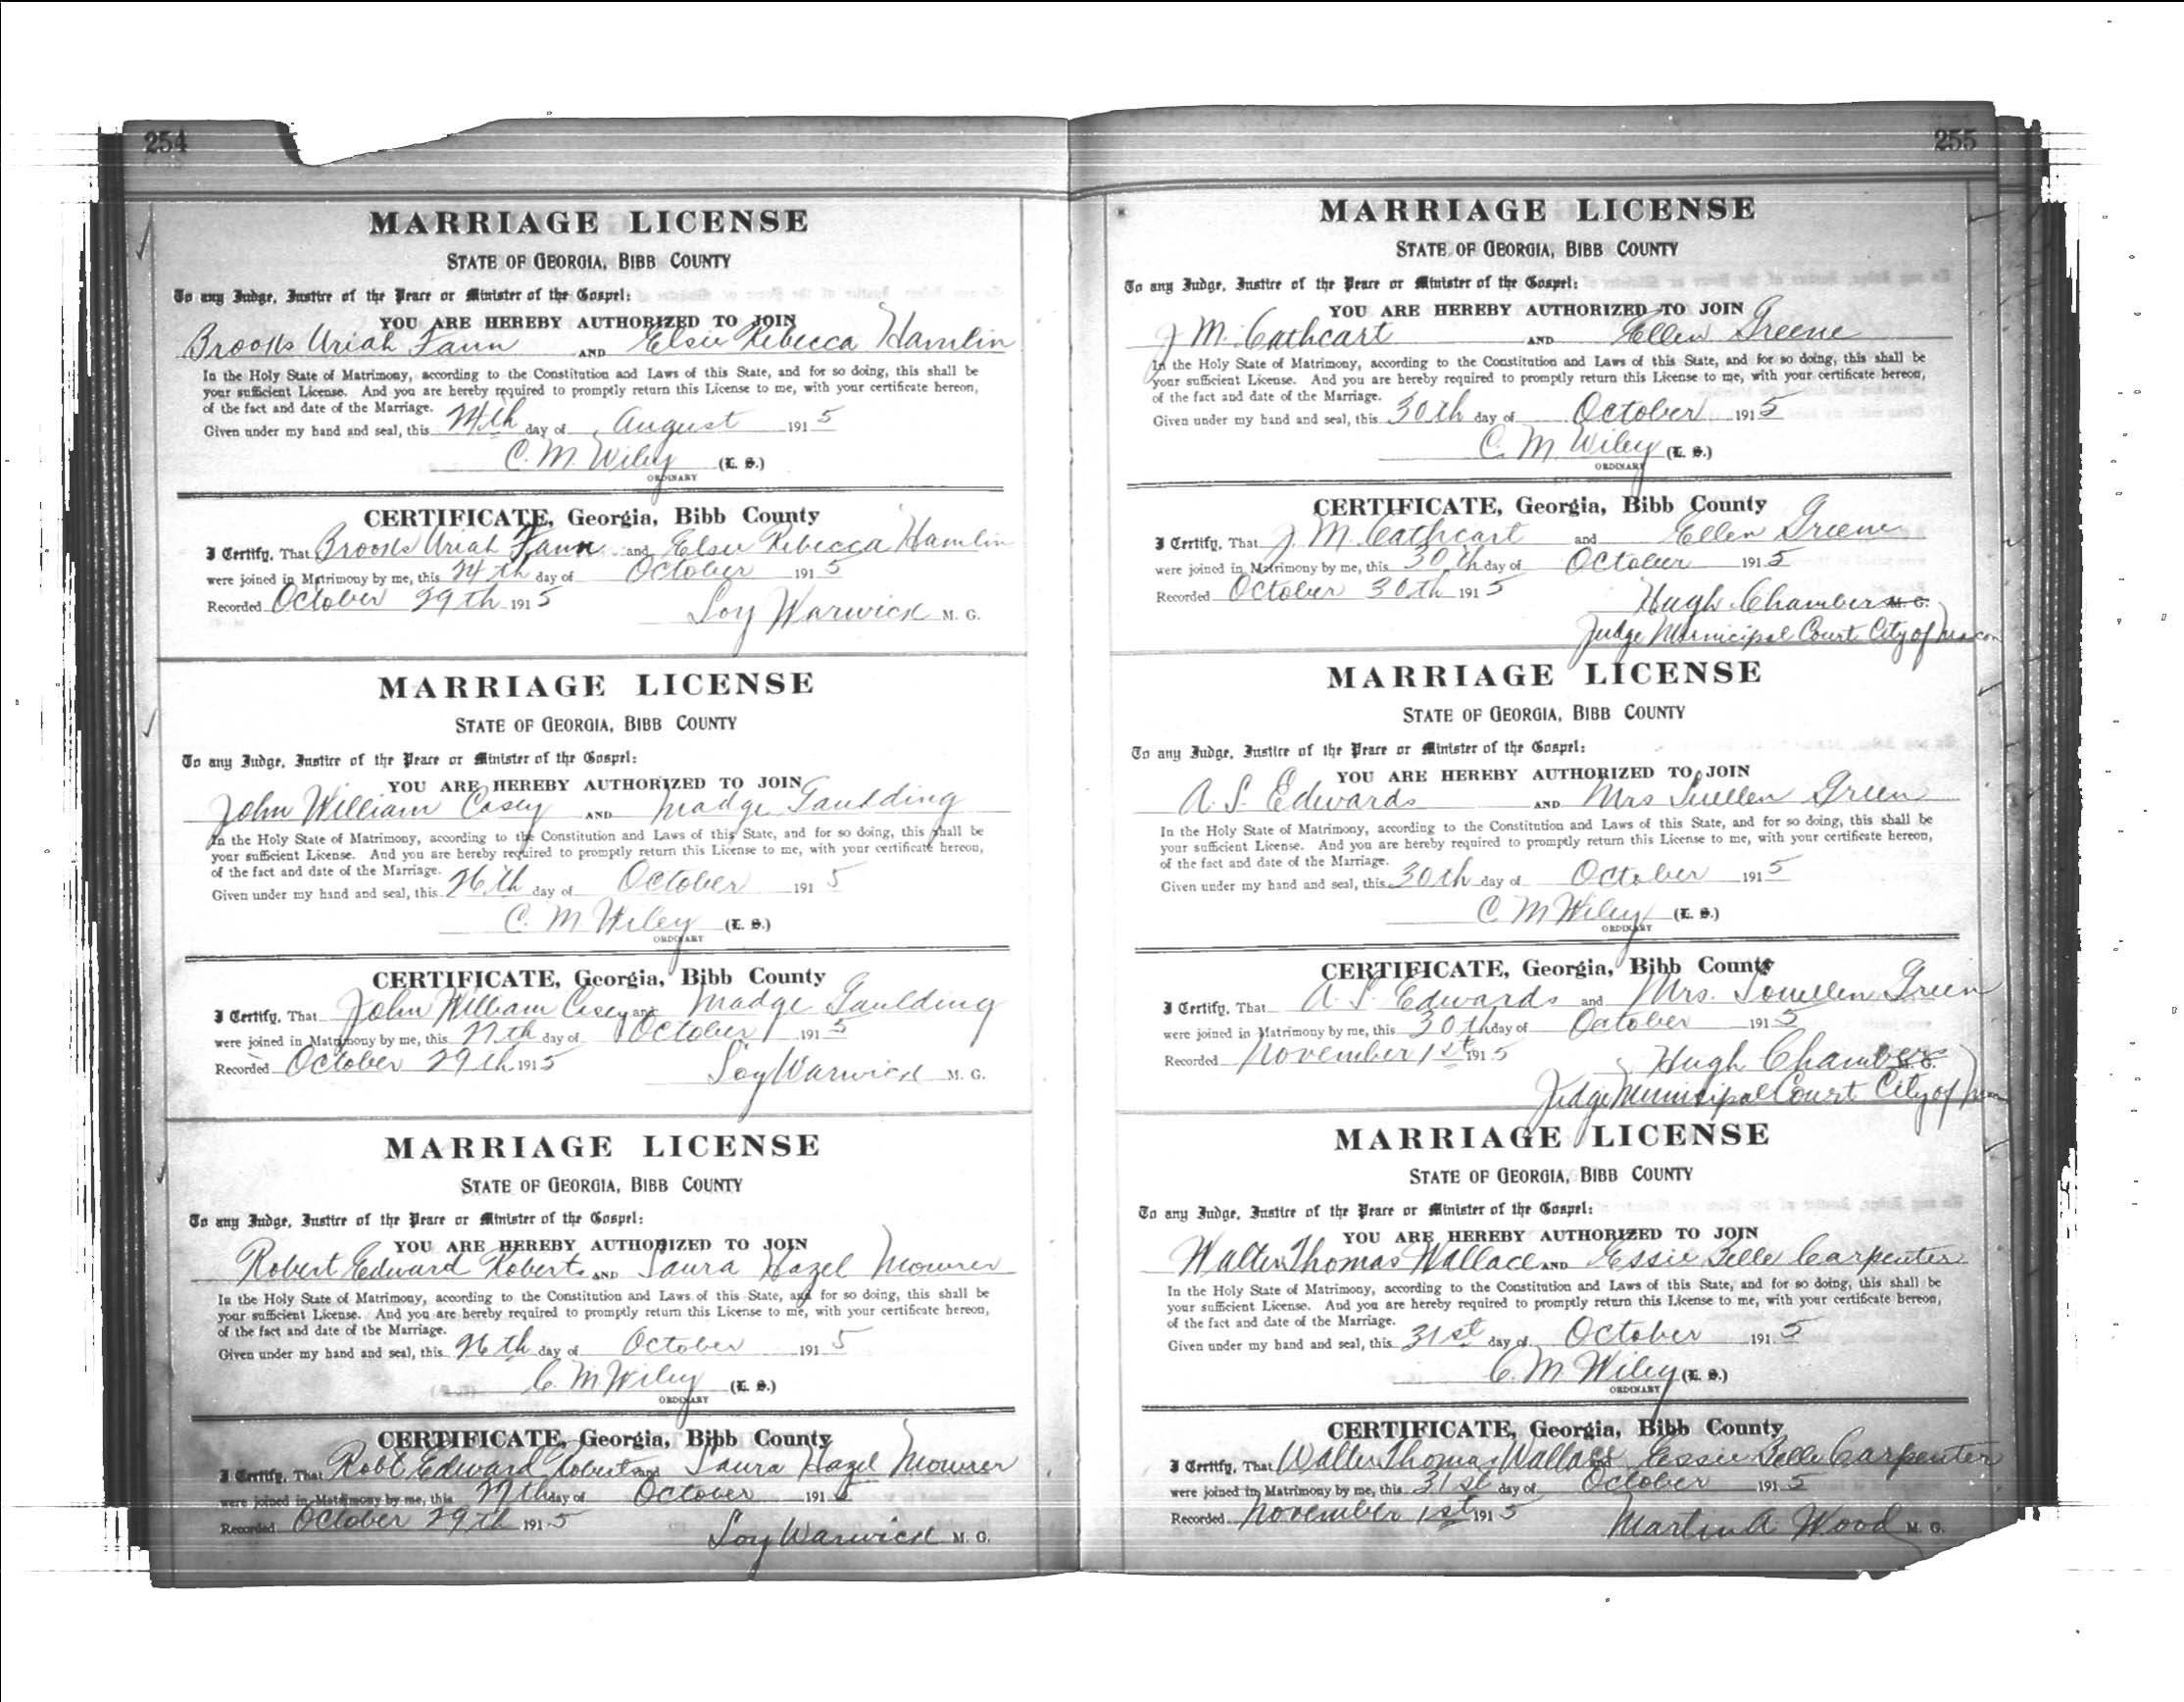 254
MARRIAGE LICENSE
STATE OF GEORGIA, BIBB COUNTY
To any Judge, Justice of the Peace or Minister of the Gospel:
YOU ARE HEREBY AUTHORIZED TO JOIN
Brooks Uriah Fann AND Elsie Rebecca Hamlin
In the Holy State of Matrimony, according to the Constitution and Laws of this State, and for so doing, this shall be
your sufficient License. And you are hereby required to promptly return this License to me, with your certificate hereon,
of the fact and date of the Marriage.
Given under my hand and seal, this 24th day of August 1915
C. M. Wiley (L. S.)
ORDINARY
CERTIFICATE, Georgia, Bibb County
I Certify, That Brooks Uriah Fann and Elsie Rebecca Hamlin
were joined in Matrimony by me, this 24th day of October 1915
Recorded October 29th 1915
Loy Warwick M. G.
MARRIAGE LICENSE
STATE OF GEORGIA, BIBB COUNTY
To any Judge, Justice of the Peace or Minister of the Gospel:
YOU ARE HEREBY AUTHORIZED TO JOIN
John William Casey AND Madge Gaulding
In the Holy State of Matrimony, according to the Constitution and Laws of this State, and for so doing, this shall be
your sufficient License. And you are hereby required to promptly return this License to me, with your certificate hereon,
of the fact and date of the Marriage.
Given under my hand and seal, this 26th day of October 1915
C. M Wiley (L. S.)
ORDINARY
CERTIFICATE, Georgia, Bibb County
I Certify, That John William Casey and Madge Gaulding
were joined in Matrimony by me, this 27th day of October 1915
Recorded October 29th 1915
Loy Warwick M. G.
MARRIAGE LICENSE
STATE OF GEORGIA, BIBB COUNTY
To any Judge, Justice of the Peace or Minister of the Gospel:
YOU ARE HEREBY AUTHORIZED TO JOIN
Robert Edward Roberts AND Laura Hazel Mowrer
In the Holy State of Matrimony, according to the Constitution and Laws of this State, and for so doing, this shall be
your sufficient License. And you are hereby required to promptly return this License to me, with your certificate hereon,
of the fact and date of the Marriage.
Given under my hand and seal, this 26th day of October 1915
C. M Wiley (L. S.)
ORDINARY
CERTIFICATE, Georgia, Bibb County
I Certify, That Robt Edward Roberts and Laura Hazel Mowrer
were joined in Matrimony by me, this 27th day of October 1915
Recorded October 29th 1915
Loy Warwick M. G.
255
MARRIAGE LICENSE
STATE OF GEORGIA, BIBB COUNTY
To any Judge, Justice of the Peace or Minister of the Gospel:
YOU ARE HEREBY AUTHORIZED TO JOIN
J M. Cathcart AND Ellen Greene
In the Holy State of Matrimony, according to the Constitution and Laws of this State, and for so doing, this shall be
your sufficient License. And you are hereby required to promptly return this License to me, with your certificate hereon,
of the fact and date of the Marriage.
Given under my hand and seal, this 30th day of October 1915
C. M. Wiley (L. S.)
ORDINARY
CERTIFICATE, Georgia, Bibb County
I Certify, That J. M. Cathcart and Ellen Greene
were joined in Matrimony by me, this 30th day of October 1915
Recorded October 30th 1915
Hugh Chambers M. G.
Judge Municipal Court City of Macon
MARRIAGE LICENSE
STATE OF GEORGIA, BIBB COUNTY
To any Judge, Justice of the Peace or Minister of the Gospel:
YOU ARE HEREBY AUTHORIZED TO JOIN
A. S. Edwards AND Mrs Suellen Green
In the Holy State of Matrimony, according to the Constitution and Laws of this State, and for so doing, this shall be
your sufficient License. And you are hereby required to promptly return this License to me, with your certificate hereon,
of the fact and date of the Marriage.
Given under my hand and seal, this 30th day of October 1915
C M Wiley (L. S.)
ORDINARY
CERTIFICATE, Georgia, Bibb County
I Certify, That A. S. Edwards and Mrs. Souellen Green
were joined in Matrimony by me, this 30th day of October 1915
Recorded November 1st 1915
Hugh Chambers M. G.
Judge Municipal Court City of Macon
MARRIAGE LICENSE
STATE OF GEORGIA, BIBB COUNTY
To any Judge, Justice of the Peace or Minister of the Gospel:
YOU ARE HEREBY AUTHORIZED TO JOIN
Walter Thomas Wallace AND Essie Belle Carpenter
In the Holy State of Matrimony, according to the Constitution and Laws of this State, and for so doing, this shall be
your sufficient License. And you are hereby required to promptly return this License to me, with your certificate hereon,
of the fact and date of the Marriage.
Given under my hand and seal, this 31st day of October 1915
C. M Wiley (L. S.)
ORDINARY
CERTIFICATE, Georgia, Bibb County
I Certify, That Walter Thomas Wallace Essie Belle Carpenter
were joined in Matrimony by me, this 31st day of October 1915
Recorded November 1st 1915
Martin A. Wood M. G.